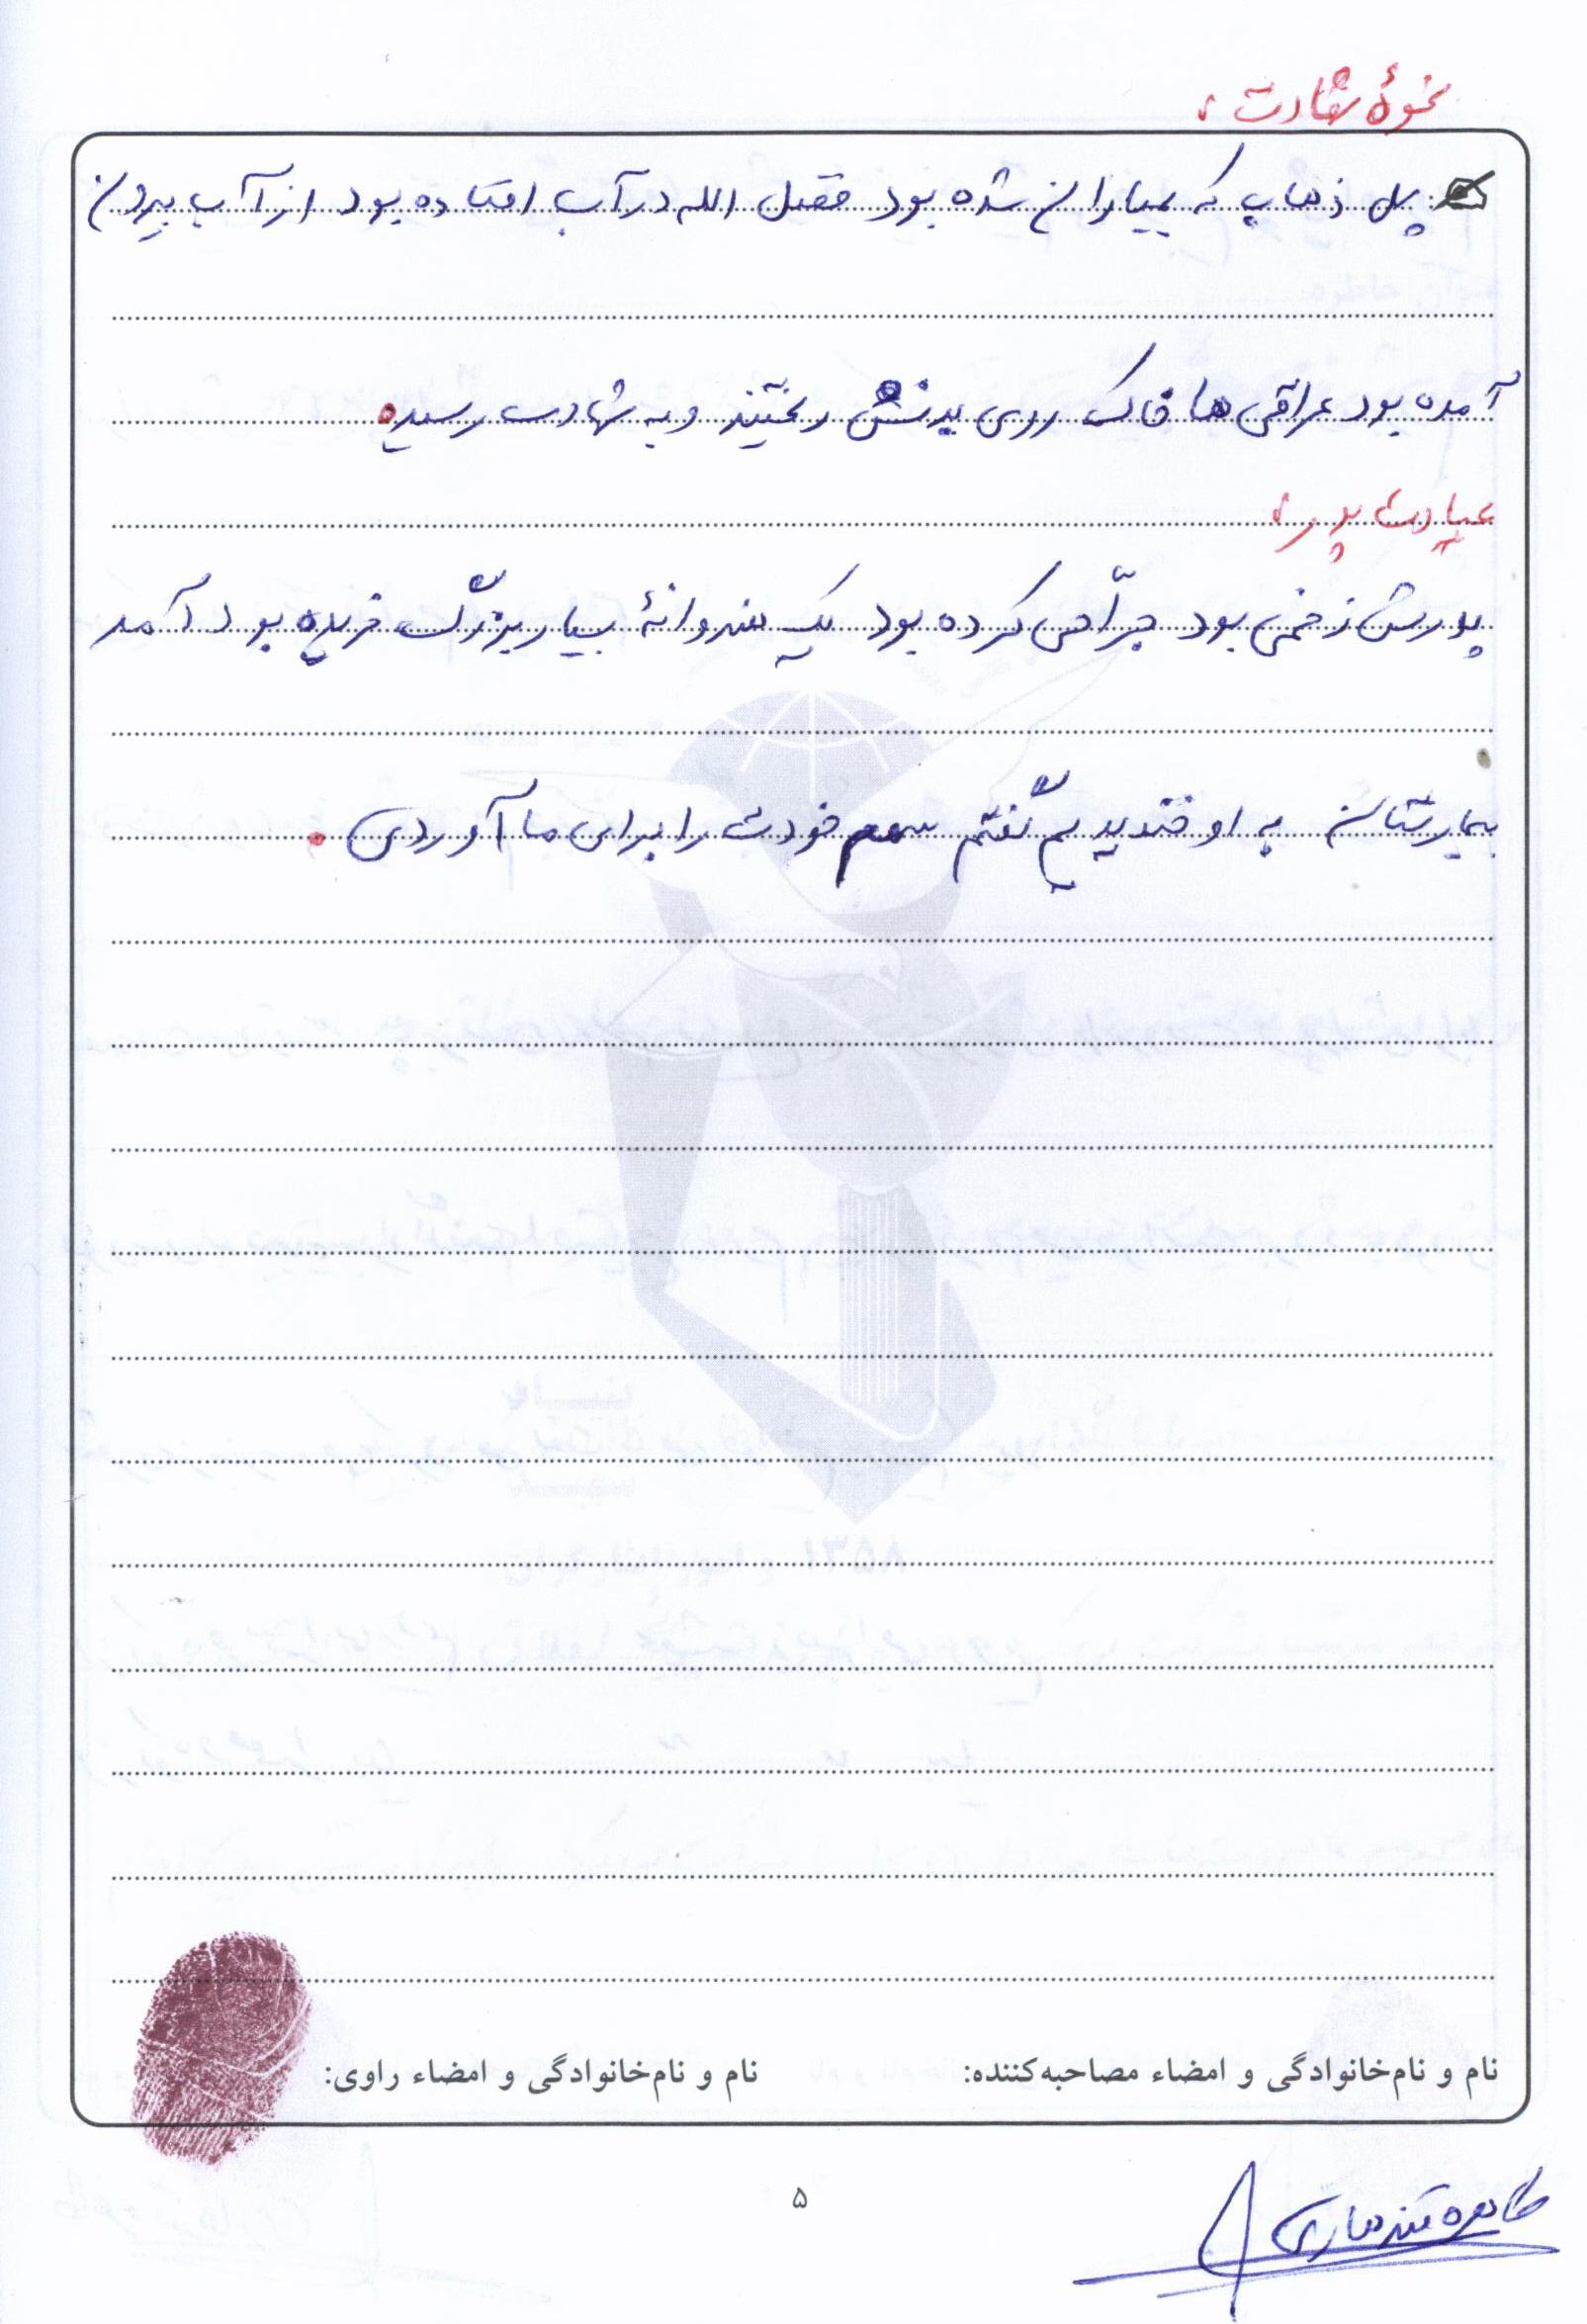 نحوهٔ شهادت:
پل ذهاب که بمباران شده بود فضل الله در آب افتاده بود از آب بیرون
آمده بود عراقی ها خاک روی بدنش ریختند و به شهادت رسید.
عیادت پدر:
پدرش زخمی بود جرّاحی کرده بود یک هندوانهٔ بسیار بزرگ خریده بود آمد
بیمارستان به او خندیدیم گفتم سهم خودت را برای ما آوردی.
نام و نام‌خانوادگی و امضاء مصاحبه‌کننده: نام و نام‌خانوادگی و امضاء راوی:
۵
طاهره قندهاری